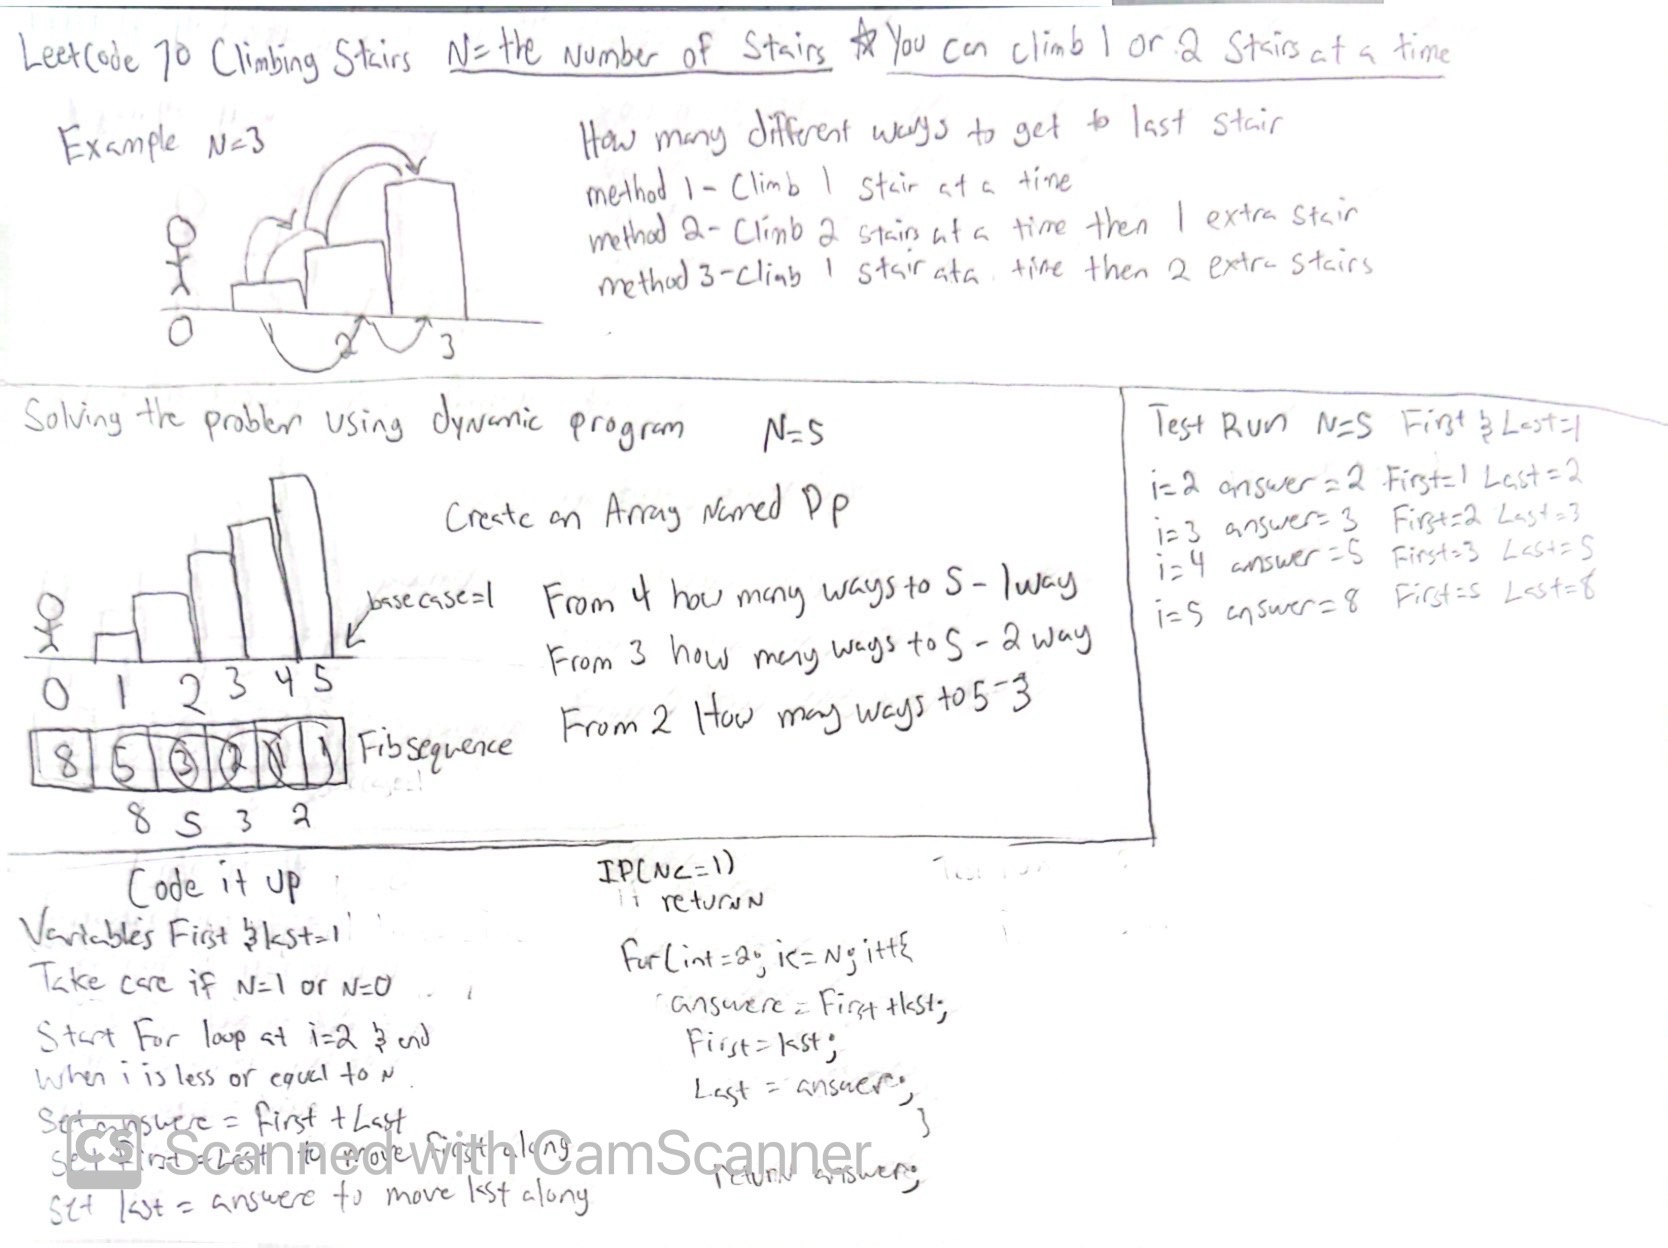 LeetCode 70 Climbing Stairs N= the Number of Stairs ☆ You can climb 1 or 2 Stairs at a time
Example N=3
How many different ways to get to last stair
method 1 - Climb 1 stair at a time
method 2 - Climb 2 stairs at a time then 1 extra stair
method 3 - Climb 1 stair at a time then 2 extra stairs
0 2 3
Solving the problem using dynamic program N=5
Create an Array Named Dp
basecase=1
From 4 how many ways to 5 - 1 way
From 3 how many ways to 5 - 2 way
From 2 How may ways to 5 - 3
0 1 2 3 4 5
8 5 3 2 1 1 Fib sequence
8 5 3 2
Test Run N=5 First & Last=1
i=2 answer=2 First=1 Last=2
i=3 answer=3 First=2 Last=3
i=4 answer=5 First=3 Last=5
i=5 answer=8 First=5 Last=8
Code it up
Variables First & last=1
Take care if N=1 or N=0
Start For loop at i=2 & end
when i is less or equal to N
Set answere = First + Last
Set First = Last to move first along
Set last = answere to move last along
IF(N<=1)
return N
For(int=2; i<=N; i++{
answere = First + last;
First = last;
Last = answer;
}
return answer;
CS Scanned with CamScanner